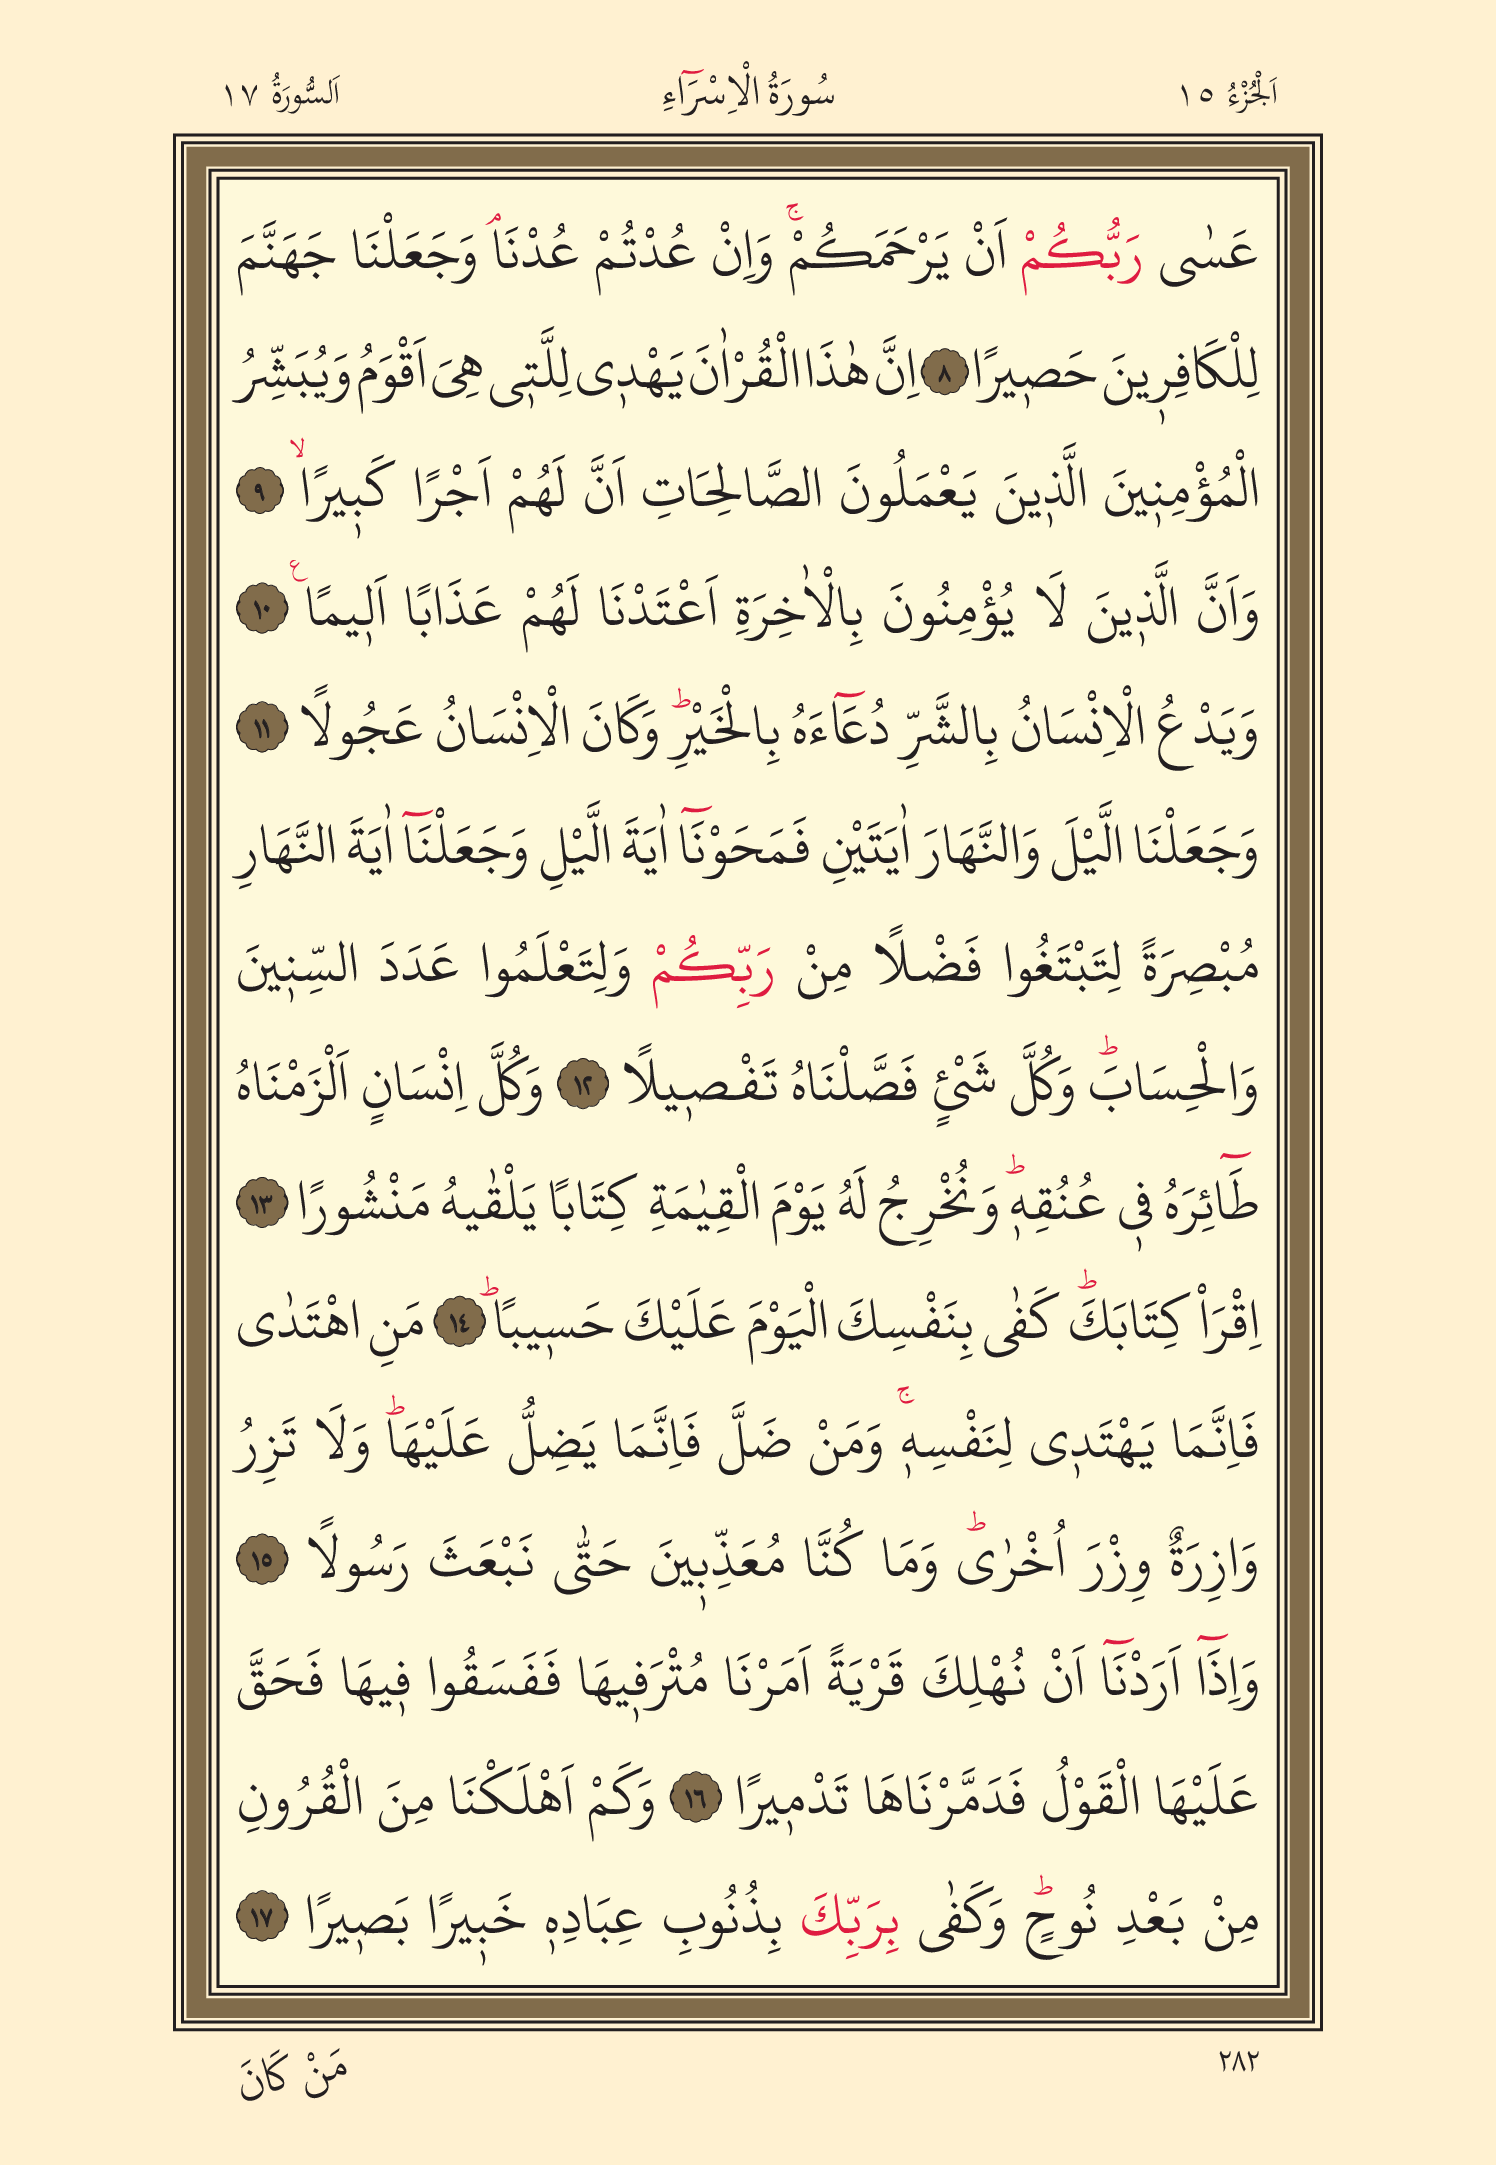 اَلْجُزْءُ ١٥ سُورَةُ الْاِسْرَٓاءِ اَلسُّورَةُ ١٧
عَسٰى رَبُّكُمْ اَنْ يَرْحَمَكُمْۚ وَاِنْ عُدْتُمْ عُدْنَاۢ وَجَعَلْنَا جَهَنَّمَ
لِلْكَافِرٖينَ حَصٖيرًا ٨ اِنَّ هٰذَا الْقُرْاٰنَ يَهْدٖى لِلَّتٖى هِىَ اَقْوَمُ وَيُبَشِّرُ
الْمُؤْمِنٖينَ الَّذٖينَ يَعْمَلُونَ الصَّالِحَاتِ اَنَّ لَهُمْ اَجْرًا كَبٖيرًاۙ ٩
وَاَنَّ الَّذٖينَ لَا يُؤْمِنُونَ بِالْاٰخِرَةِ اَعْتَدْنَا لَهُمْ عَذَابًا اَلٖيمًا ع ١٠
وَيَدْعُ الْاِنْسَانُ بِالشَّرِّ دُعَٓاءَهُ بِالْخَيْرِؕ وَكَانَ الْاِنْسَانُ عَجُولًا ١١
وَجَعَلْنَا الَّيْلَ وَالنَّهَارَ اٰيَتَيْنِ فَمَحَوْنَٓا اٰيَةَ الَّيْلِ وَجَعَلْنَٓا اٰيَةَ النَّهَارِ
مُبْصِرَةً لِتَبْتَغُوا فَضْلًا مِنْ رَبِّكُمْ وَلِتَعْلَمُوا عَدَدَ السِّنٖينَ
وَالْحِسَابَؕ وَكُلَّ شَىْءٍ فَصَّلْنَاهُ تَفْصٖيلًا ١٢ وَكُلَّ اِنْسَانٍ اَلْزَمْنَاهُ
طَٓائِرَهُ فٖى عُنُقِهٖؕ وَنُخْرِجُ لَهُ يَوْمَ الْقِيٰمَةِ كِتَابًا يَلْقٰيهُ مَنْشُورًا ١٣
اِقْرَاْ كِتَابَكَؕ كَفٰى بِنَفْسِكَ الْيَوْمَ عَلَيْكَ حَسٖيبًاؕ ١٤ مَنِ اهْتَدٰى
فَاِنَّمَا يَهْتَدٖى لِنَفْسِهٖۚ وَمَنْ ضَلَّ فَاِنَّمَا يَضِلُّ عَلَيْهَاؕ وَلَا تَزِرُ
وَازِرَةٌ وِزْرَ اُخْرٰىؕ وَمَا كُنَّا مُعَذِّبٖينَ حَتّٰى نَبْعَثَ رَسُولًا ١٥
وَاِذَٓا اَرَدْنَٓا اَنْ نُهْلِكَ قَرْيَةً اَمَرْنَا مُتْرَفٖيهَا فَفَسَقُوا فٖيهَا فَحَقَّ
عَلَيْهَا الْقَوْلُ فَدَمَّرْنَاهَا تَدْمٖيرًا ١٦ وَكَمْ اَهْلَكْنَا مِنَ الْقُرُونِ
مِنْ بَعْدِ نُوحٍؕ وَكَفٰى بِرَبِّكَ بِذُنُوبِ عِبَادِهٖ خَبٖيرًا بَصٖيرًا ١٧
٢٨٢ مَنْ كَانَ